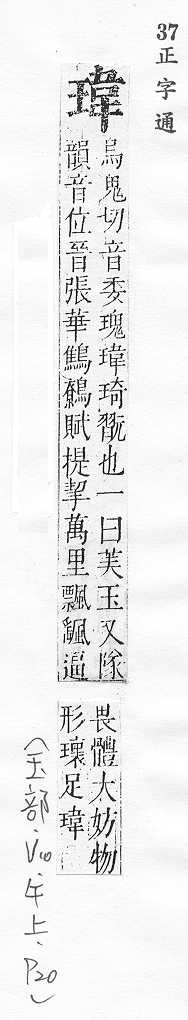 37
正字通
瑋
烏鬼切音委瑰瑋琦翫也一曰美玉又隊
韻音位晉張華鷦鷯賦提挈萬里飄颻逼
畏體大妨物
形瓌足瑋
(玉部.V10.午上.P20)